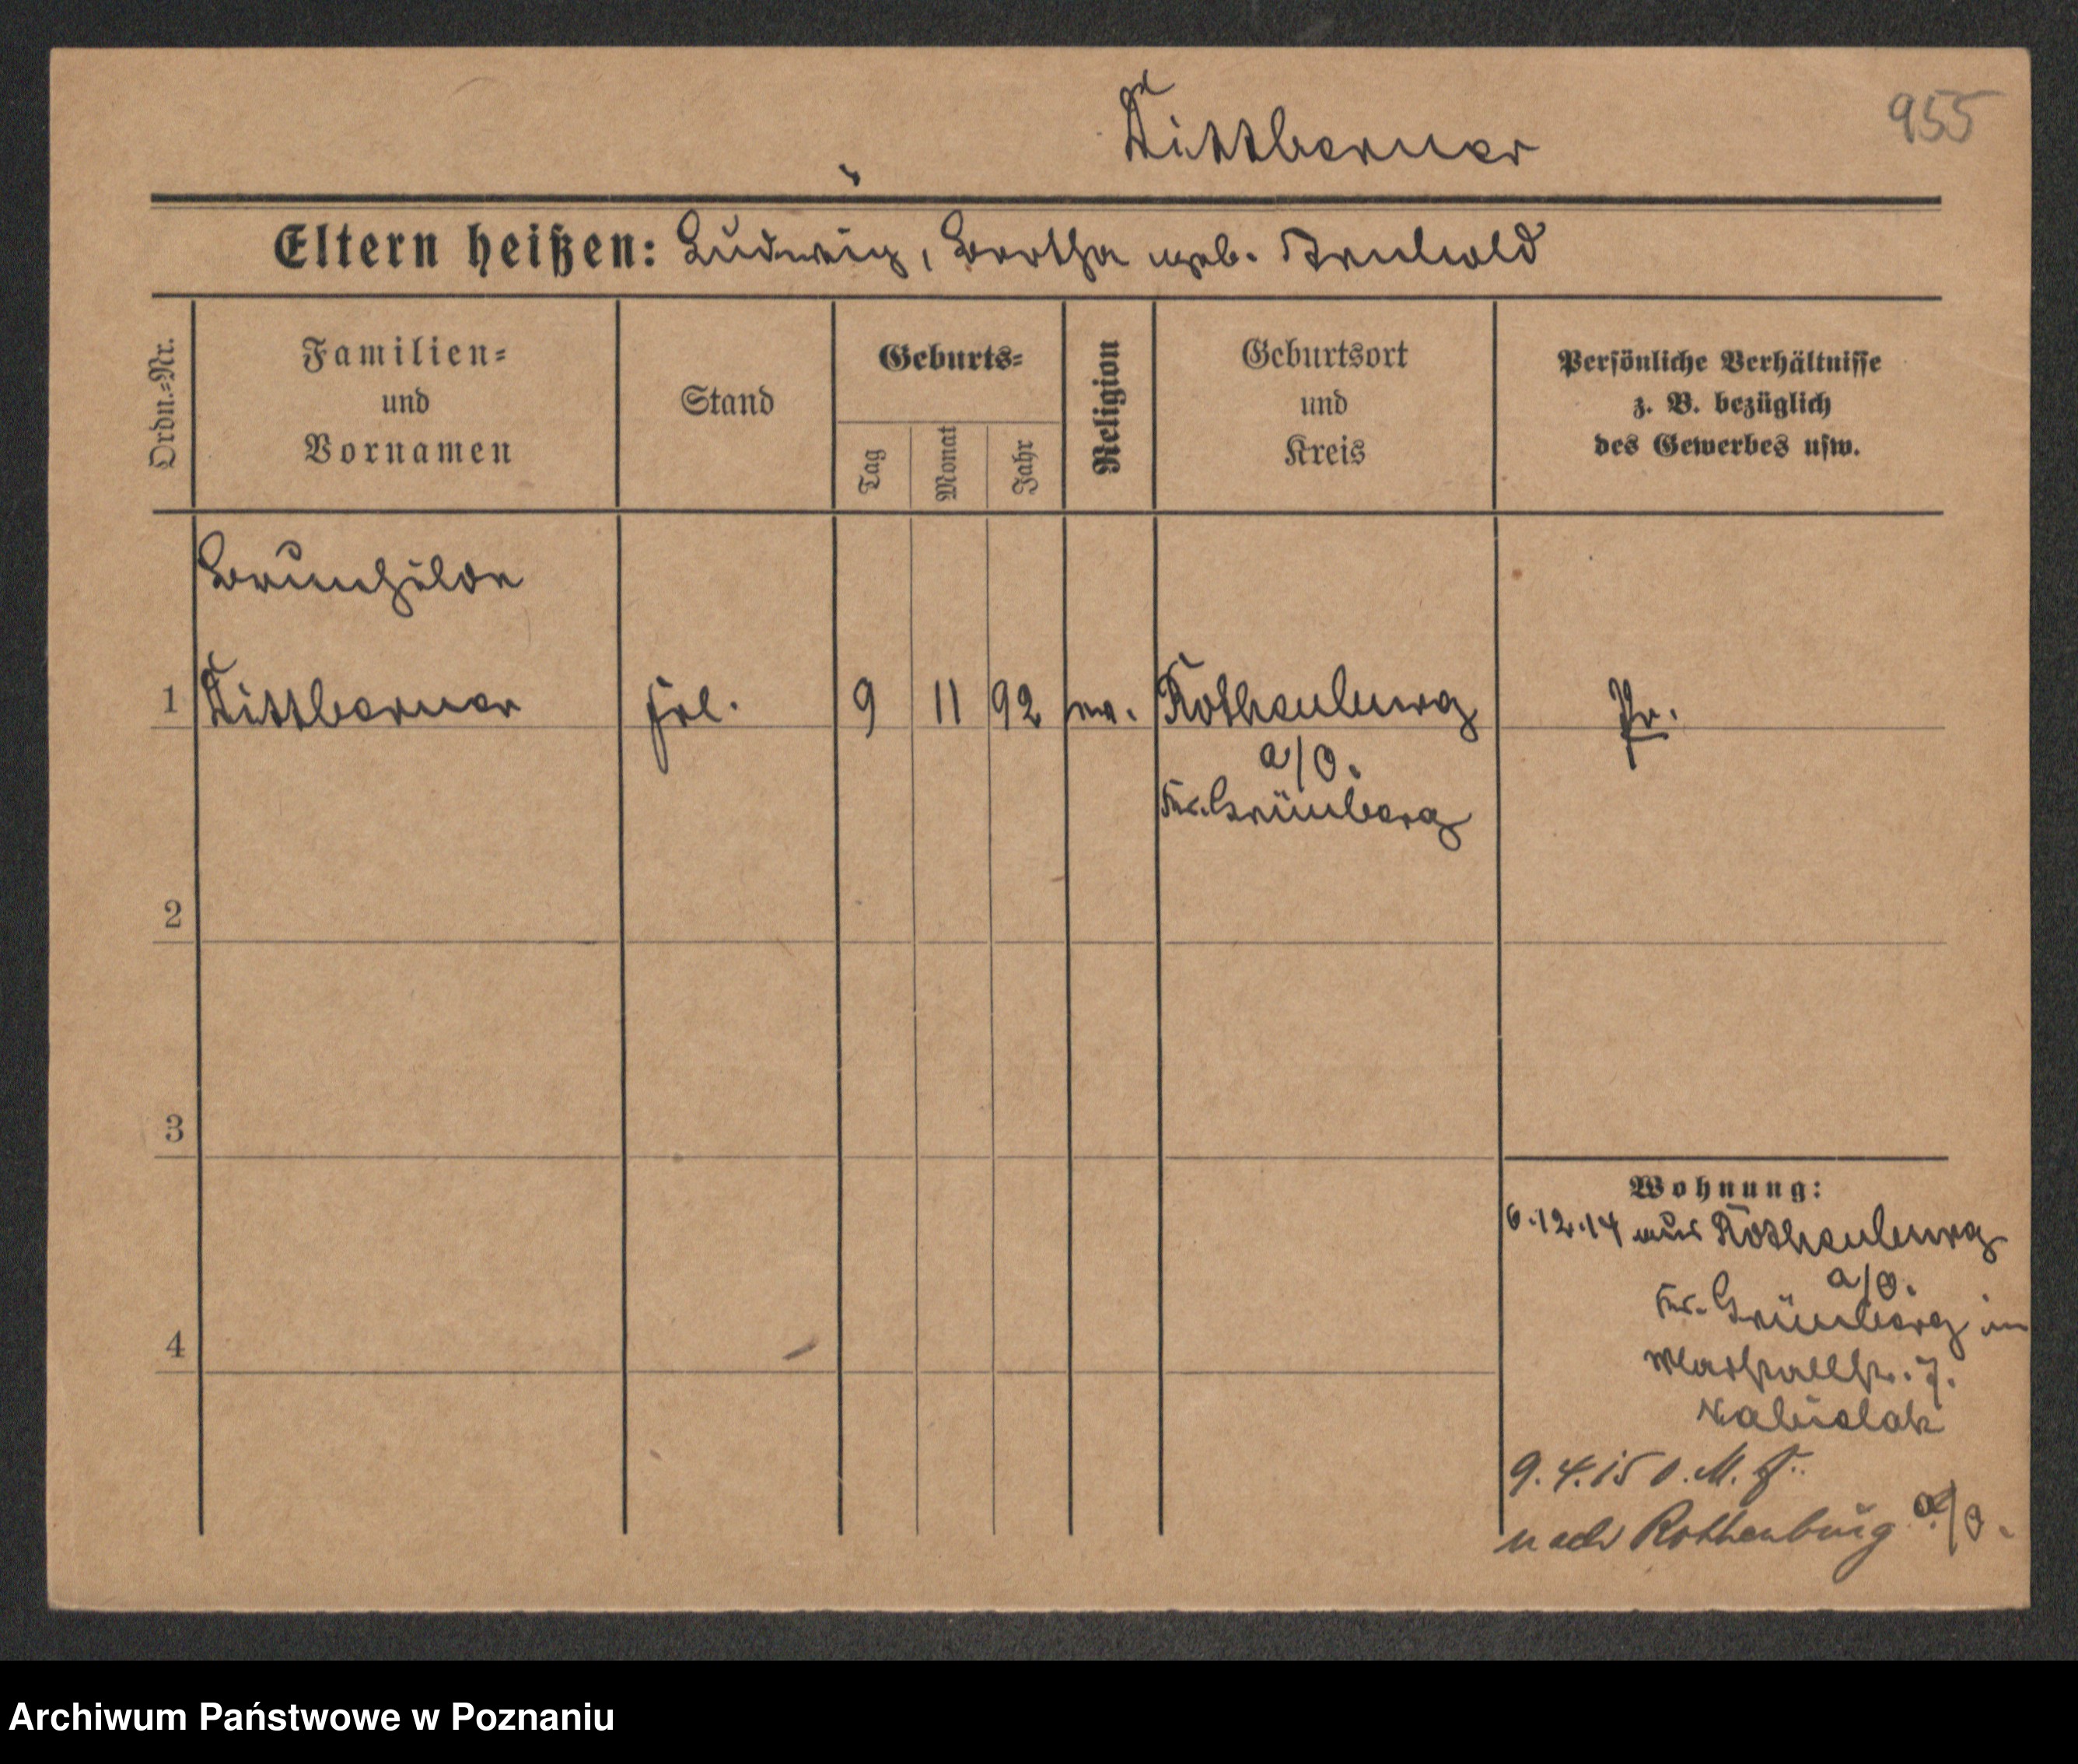 955
Dittberner
Eltern heißen: Ludwig, Bertha geb.
Ordn.-Nr.
Familien-
und
Vornamen
Stand
Geburts-
Tag
Monat
Jahr
Religion
Geburtsort
und
Kreis
Persönliche Verhältnisse
z. B. bezüglich
des Gewerbes usw.
Brunhilde
1 Dittberner frl. 9 11 92 ev. Rothenburg Pr.
a/O.
Kr. Grünberg
2
3
4
Wohnung:
6.12.14 aus Rothenburg
a/O.
Kr. Grünberg in
Marstallstr. 7.
9.4.15 o. M.
nach Rothenburg a/O.
Archiwum Państwowe w Poznaniu